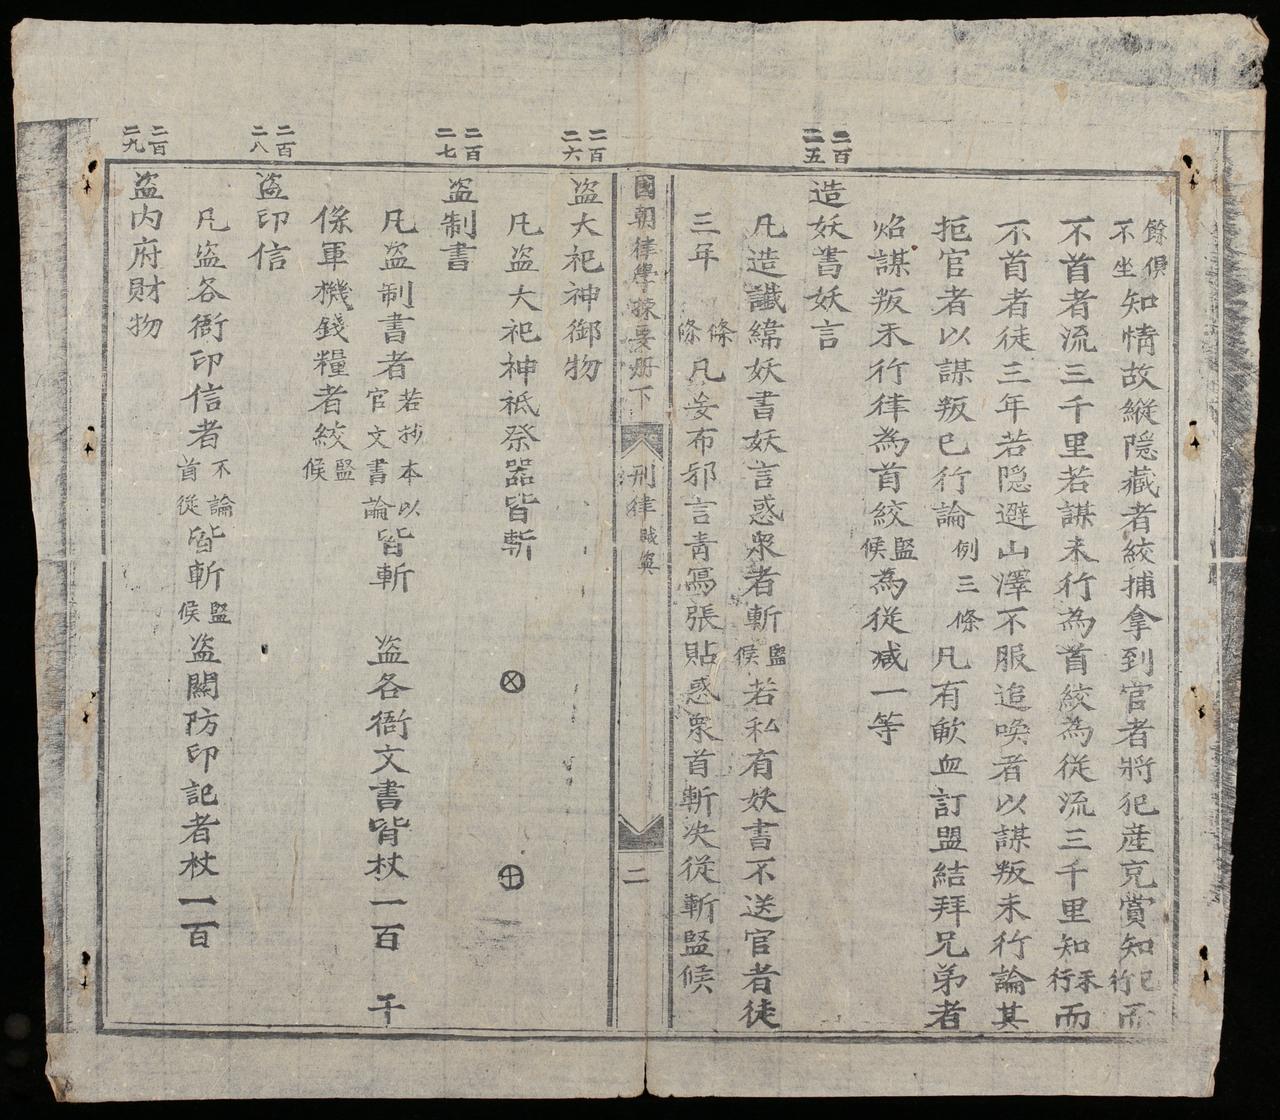 餘俱不坐知情故縱隱藏者絞捕拿到官者將犯產充賞知已行而
不首者流三千里若謀未行為首絞為從流三千里知未行而
不首者徒三年若隱避山澤不服追喚者以謀叛未行論其
拒官者以謀叛已行論例三條凡有歃血訂盟結拜兄弟者
焰謀叛未行律為首絞監候為從减一等
二百二五
造妖書妖言
凡造讖緯妖書妖言惑衆者斬監候若私有妖書不送官者徒
三年 條條凡妄布邪言書寫張貼惑衆首斬决從斬監候
國朝律學揀要册下 刑律 賊盗 二
二百二六
盗大祀神御物
凡盗大祀神祗祭器皆斬
二百二七
盗制書
凡盗制書者若抄本以官文書論皆斬 盗各衙文書皆杖一百 干
係軍機錢糧者絞監候
二百二八
盗印信
凡盗各衙印信者不論首從皆斬監候盗關防印記者杖一百
二百二九
盗內府財物